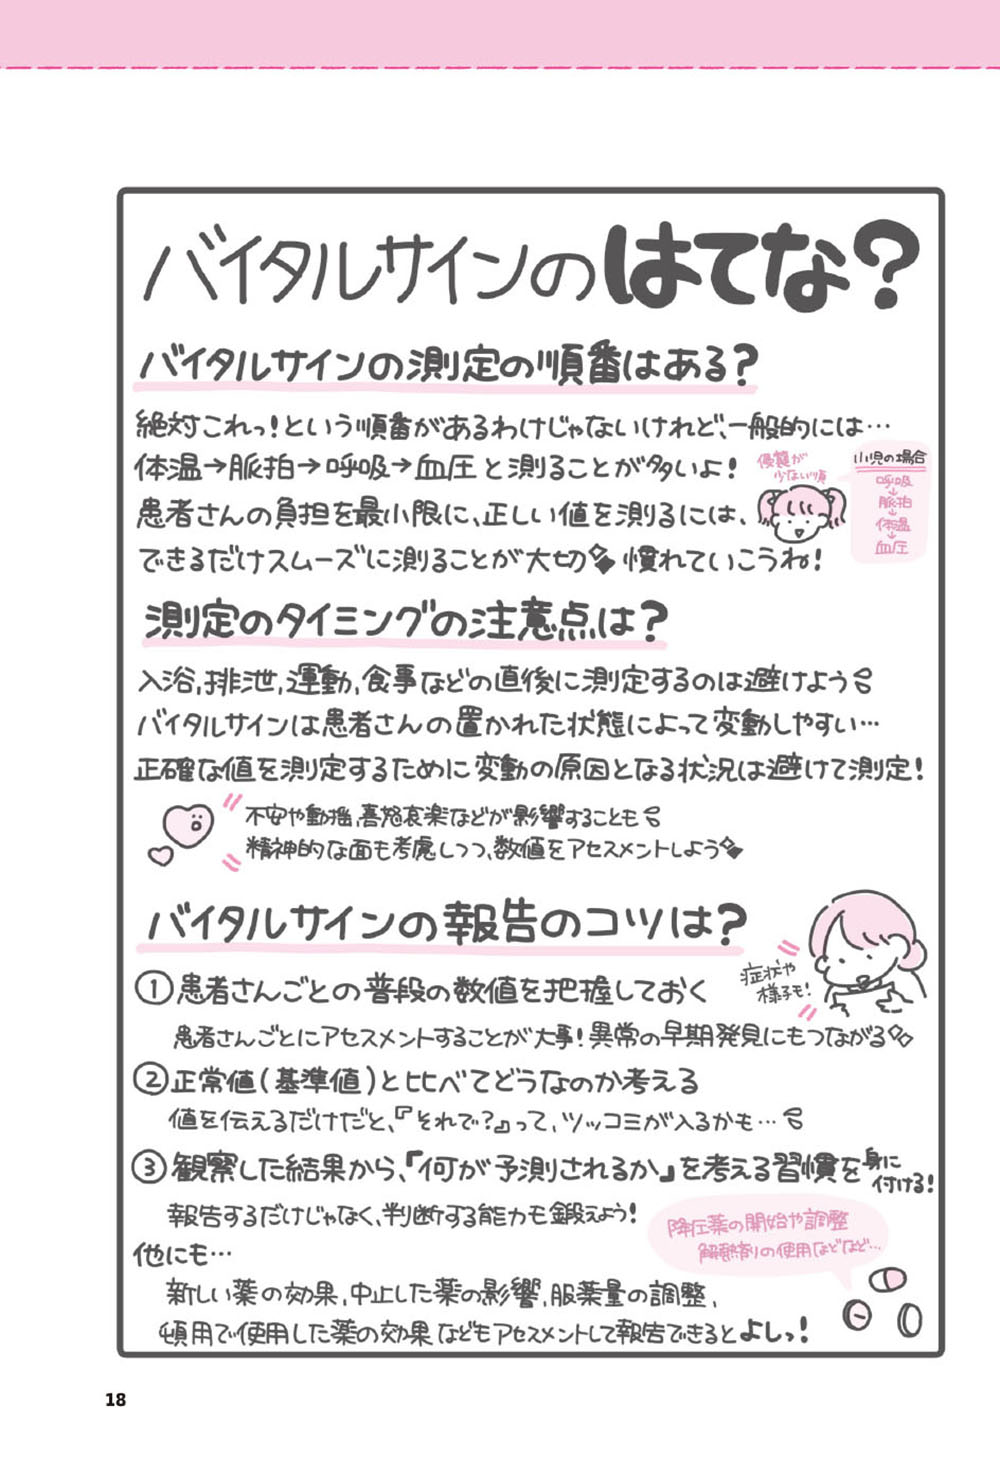 バイタルサインのはてな？
バイタルサインの測定の順番はある？
絶対これっ！という順番があるわけじゃないけれど、一般的には…
体温→脈拍→呼吸→血圧と測ることが多いよ！
患者さんの負担を最小限に、正しい値を測るには、
できるだけスムーズに測ることが大切 慣れていこうね！
侵襲が
少ない順
小児の場合
呼吸
↓
脈拍
↓
体温
↓
血圧
測定のタイミングの注意点は？
入浴,排泄,運動,食事などの直後に測定するのは避けよう
バイタルサインは患者さんの置かれた状態によって変動しやすい…
正確な値を測定するために変動の原因となる状況は避けて測定！
不安や動揺,喜怒哀楽などが影響することも
精神的な面も考慮しつつ、数値をアセスメントしよう
バイタルサインの報告のコツは？
症状や
様子も！
①患者さんごとの普段の数値を把握しておく
患者さんごとにアセスメントすることが大事！異常の早期発見にもつながる
②正常値(基準値)と比べてどうなのか考える
値を伝えるだけだと、『それで？』って、ツッコミが入るかも…
③観察した結果から、『何が予測されるか』を考える習慣を身に付ける！
報告するだけじゃなく、判断する能力も鍛えよう！
降圧薬の開始や調整
解熱剤の使用などなど…
他にも…
新しい薬の効果,中止した薬の影響,服薬量の調整,
頓用で使用した薬の効果などもアセスメントして報告できるとよしっ！
18